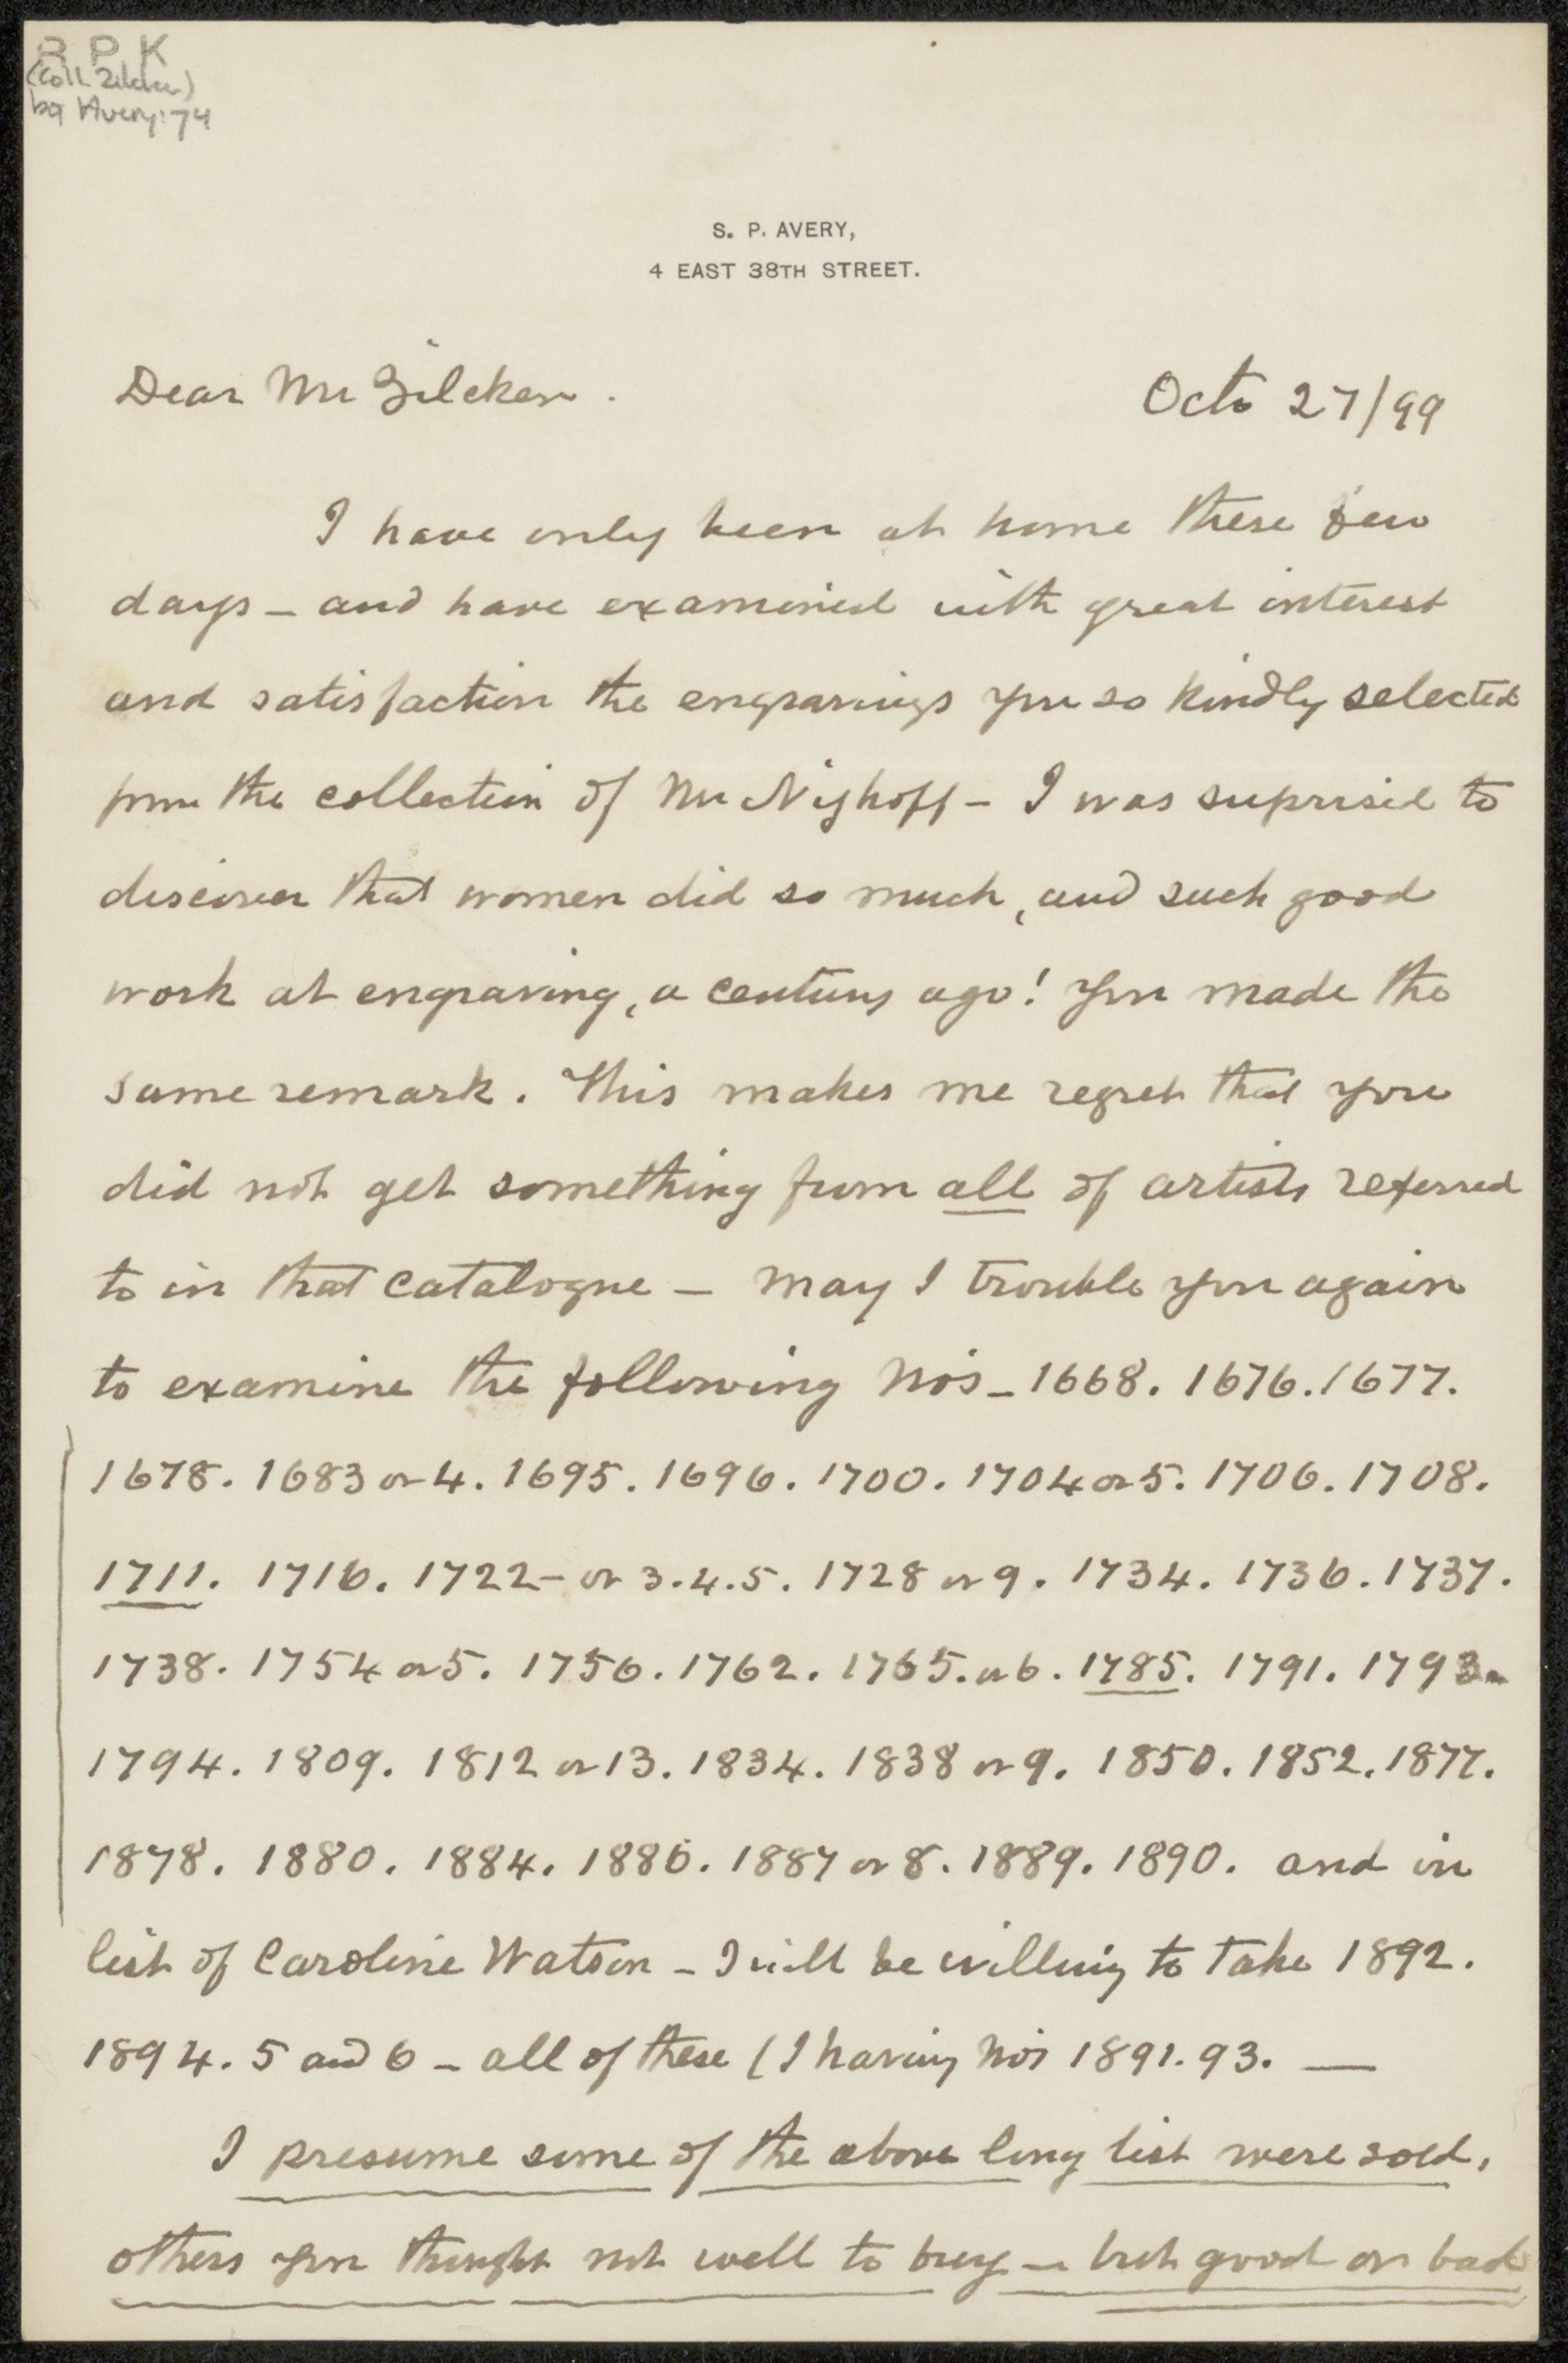 R P K
(Coll. Zilcken)
bq Avery: 74
S. P. AVERY,
4 EAST 38TH STREET.
Dear Mr Zilcken.
Octo 27/99
I have only been at home these few
days - and have examined with great interest
and satisfaction the engravings you so kindly selected
from the collection of Mr Nijhoff - I was suprised to
discover that women did so much, and such good
work at engraving, a century ago! You made the
same remark. This makes me regret that you
did not get something from all of artists referred
to in that catalogue - May I trouble you again
to examine the following Nos - 1668. 1676. 1677.
1678. 1683 or 4. 1695. 1696. 1700. 1704 or 5. 1706. 1708.
1711. 1716. 1722 - or 3. 4. 5. 1728 or 9. 1734. 1736. 1737.
1738. 1754 or 5. 1756. 1762. 1765. or 6. 1785. 1791. 1793.
1794. 1809. 1812 or 13. 1834. 1838 or 9. 1850. 1852. 1877.
1878. 1880. 1884. 1886. 1887 or 8. 1889. 1890. and in
list of Caroline Watson - I will be willing to take 1892.
1894. 5 and 6 - all of these ( I having Nos 1891. 93. —
I presume some of the above long list were sold,
others you thought not well to buy - but good or bad